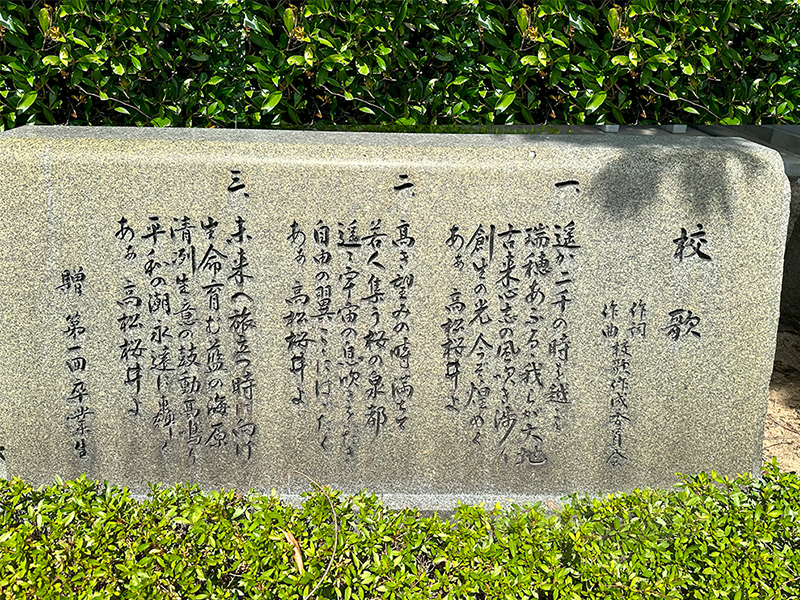 校歌
作詞
作曲 校歌作成委員会
一、
遥か二千の時を越え
瑞穂あふるゝ我らが大地
古来心志の風吹き渡り
創生の光 今ぞ煌めく
あゝ 高松桜井よ
二、
高き望みの時満ちて
若人集う桜の泉都
遥く宇宙の息吹きをいだき
自由の翼こゝにはばたく
あゝ 高松桜井よ
三、
未来へ旅立つ時に向け
生命育む藍の海原
清冽生意の鼓動高鳴り
平和の潮 永遠に轟く
あゝ 高松桜井よ
贈 第一回卒業生